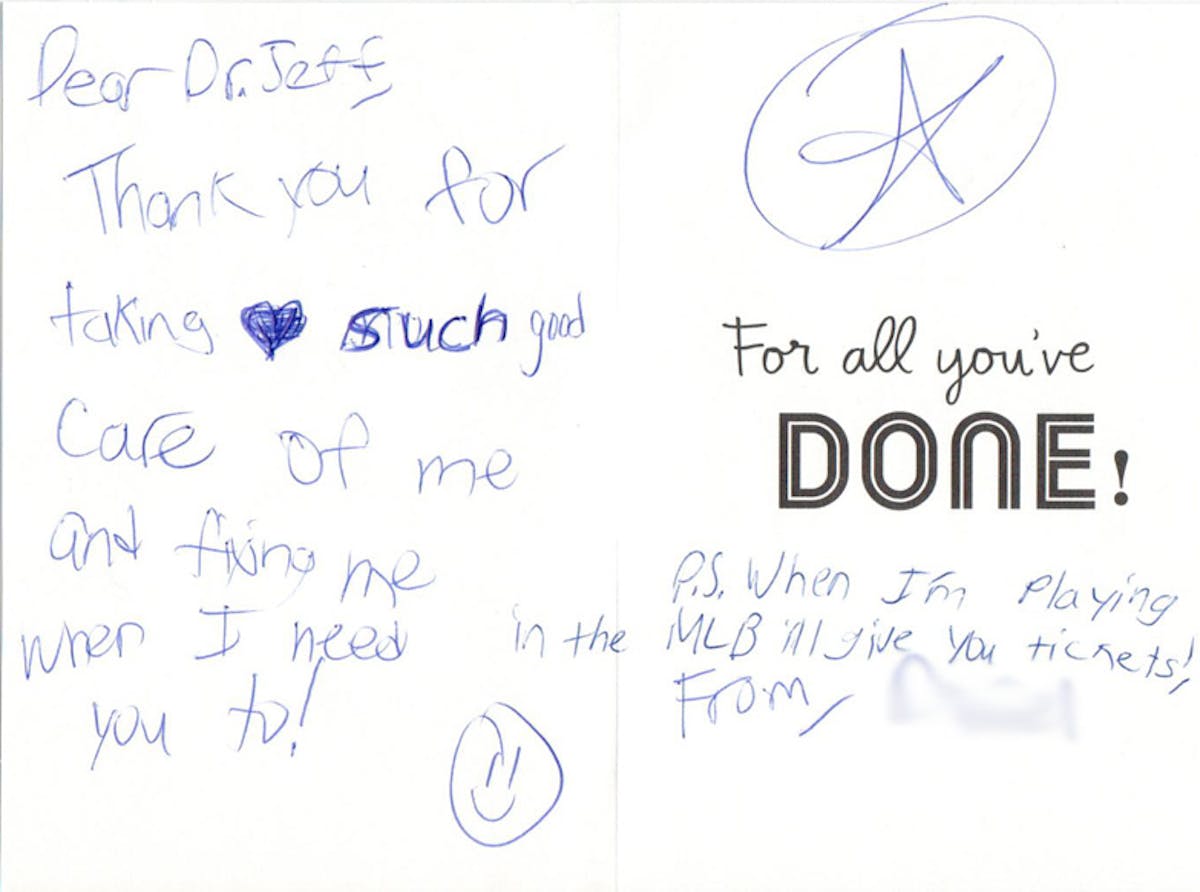 Dear Dr. Jeff,
Thank you for
taking such good
care of me
and fixing me
when I need
you to!
For all you've
DONE!
P.S. When I'm Playing
in the MLB i'll give you tickets!
From,